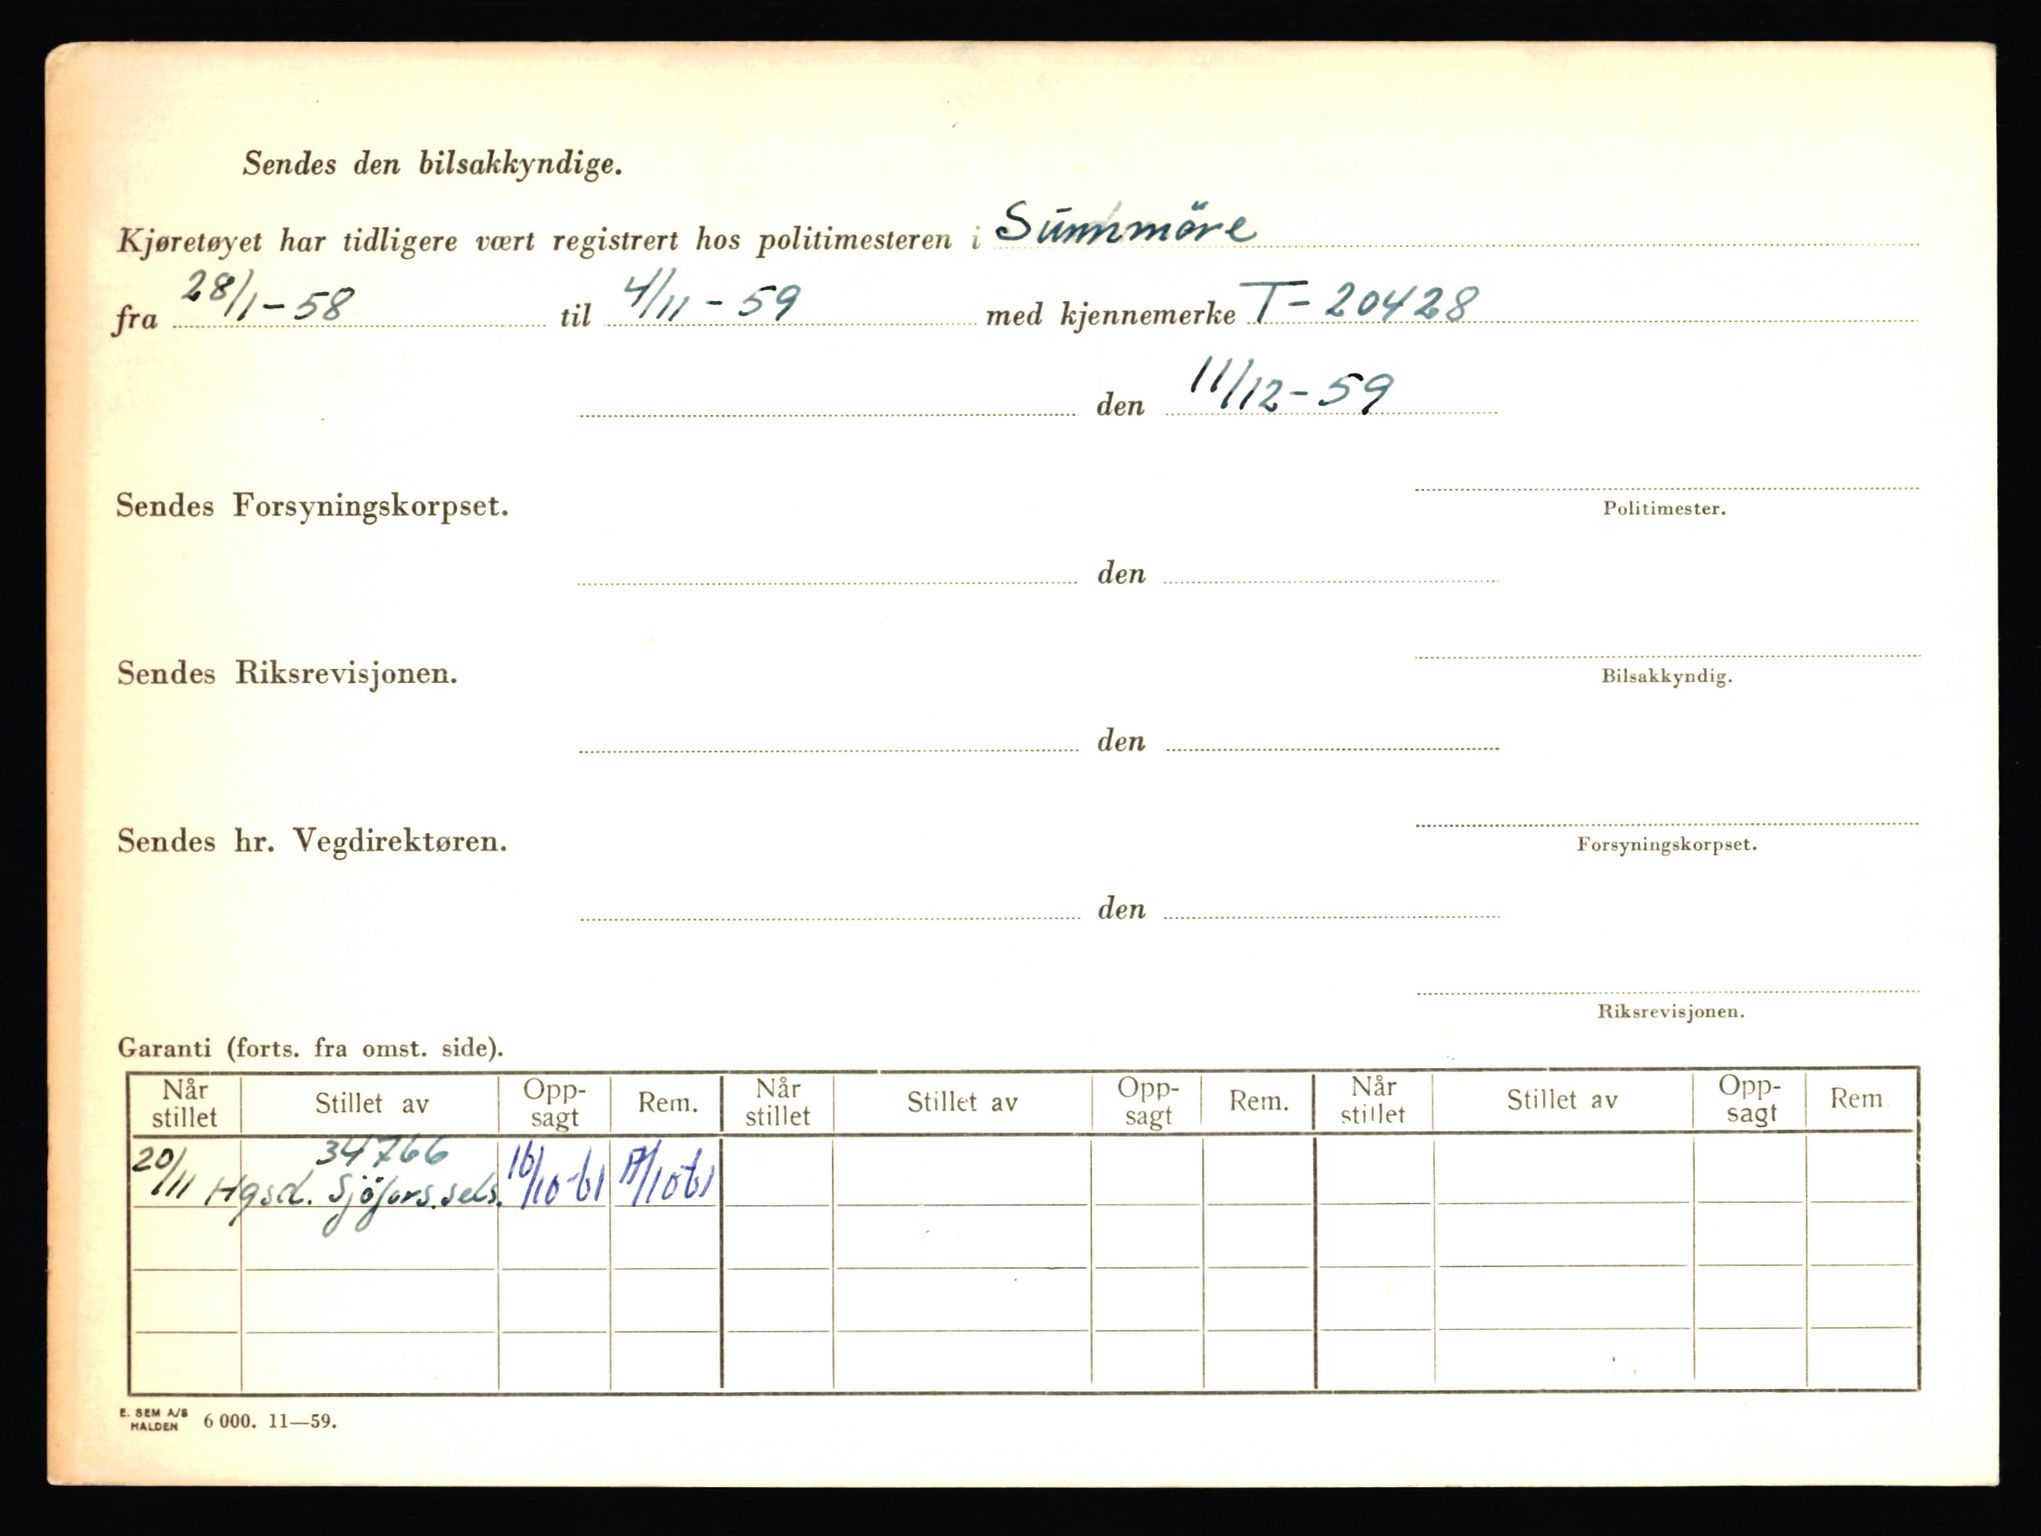 Sendes den bilsakkyndige.
Kjøretøyet har tidligere vært registrert hos politimesteren i Sunnmöre
fra 28/1-58 til 4/11-59 med kjennemerke T-20428
den 11/12-59
Sendes Forsyningskorpset.
Politimester.
den
Sendes Riksrevisjonen.
Bilsakkyndig.
den
Sendes hr. Vegdirektøren.
Forsyningskorpset.
den
Riksrevisjonen.
Garanti (forts. fra omst. side).
Når stillet Stillet av Opp-sagt Rem. Når stillet Stillet av Opp-sagt Rem. Når stillet Stillet av Opp-sagt Rem
34766
20/11 Hgsd. Sjöfors.sels. 16/10-61 17/10 61
E. SEM A/S
HALDEN 6 000. 11—59.